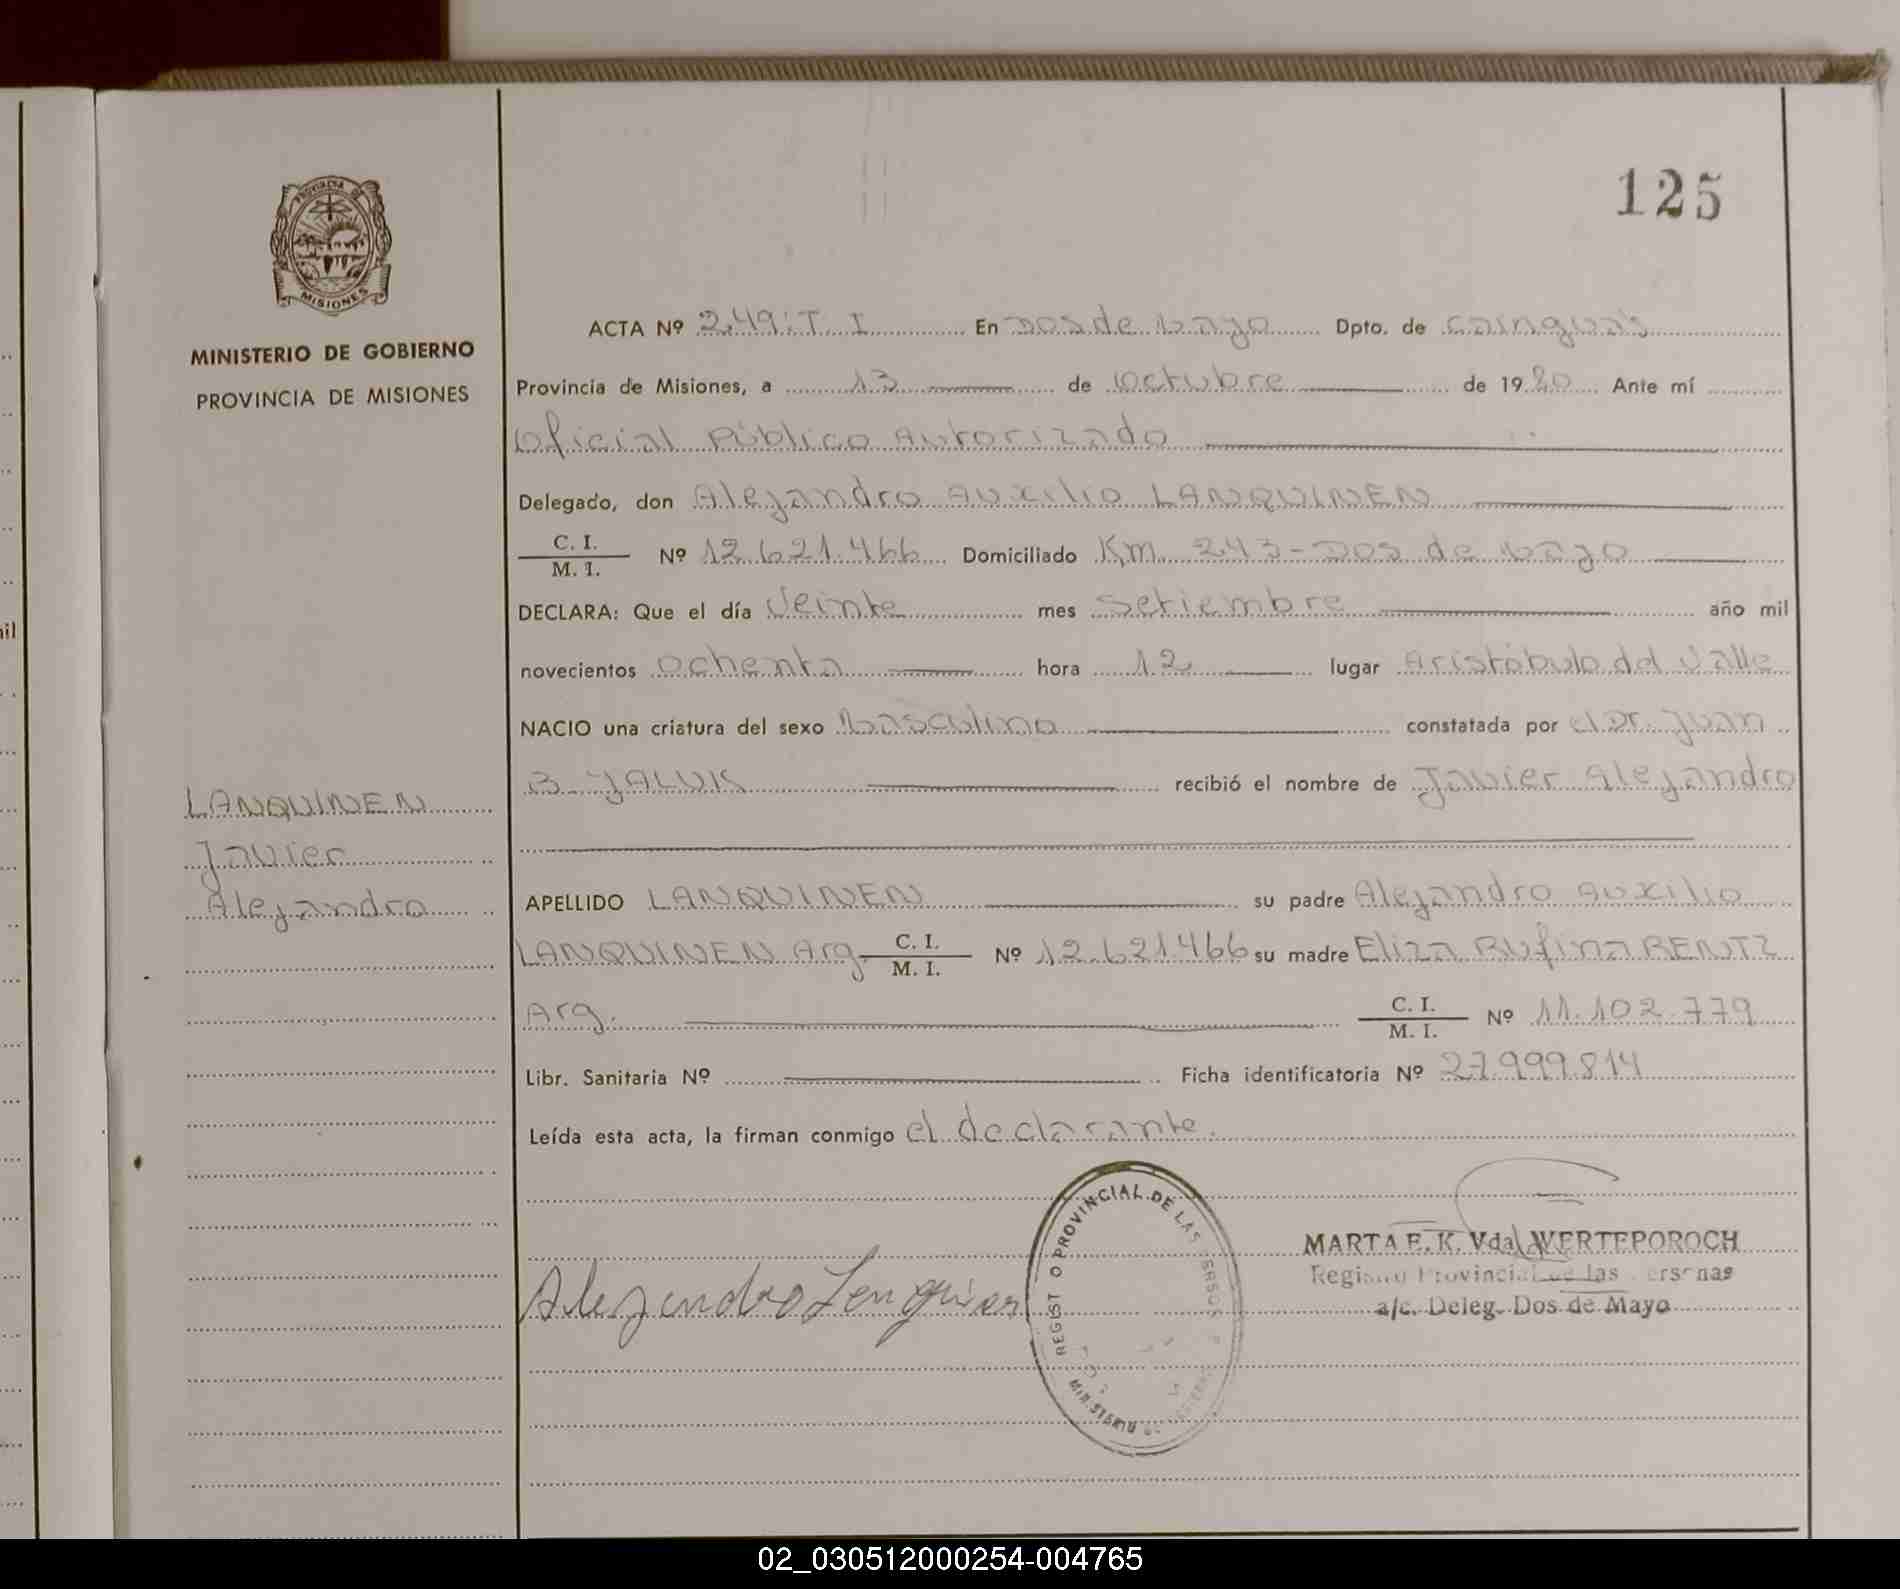 125
PROVINCIA DE
MISIONES
MINISTERIO DE GOBIERNO
PROVINCIA DE MISIONES
LANQUINEN
Javier
Alejandro
ACTA Nº 249:T I En Dos de Mayo Dpto. de Cainguás
Provincia de Misiones, a 13 de Octubre de 1980 Ante mí
Oficial Público Autorizado
Delegado, don Alejandro Auxilio LANQUINEN
C. I.
M. I. Nº 12.621.466 Domiciliado Km. 243-Dos de Mayo
DECLARA: Que el día Veinte mes Setiembre año mil
novecientos Ochenta hora 12 lugar Aristóbulo del Valle
NACIO una criatura del sexo Masculino constatada por el Dr. Juan
B. YALUK recibió el nombre de Javier Alejandro
APELLIDO LANQUINEN su padre Alejandro Auxilio
LANQUINEN Arg. C. I. M. I. Nº 12.621.466 su madre Eliza Rufina RENTZ
Arg. C. I. M. I. Nº 11.102.779
Libr. Sanitaria Nº Ficha identificatoria Nº 27.999.814
Leída esta acta, la firman conmigo el declarante.
REGIST O PROVINCIAL DE LAS PERSO
MINISTERIO
MARTA E. K. Vda. WERTEPOROCH
Registro Provincial de las Personas
a/c. Deleg. Dos de Mayo
Alejandro Lanquinen
02_030512000254-004765